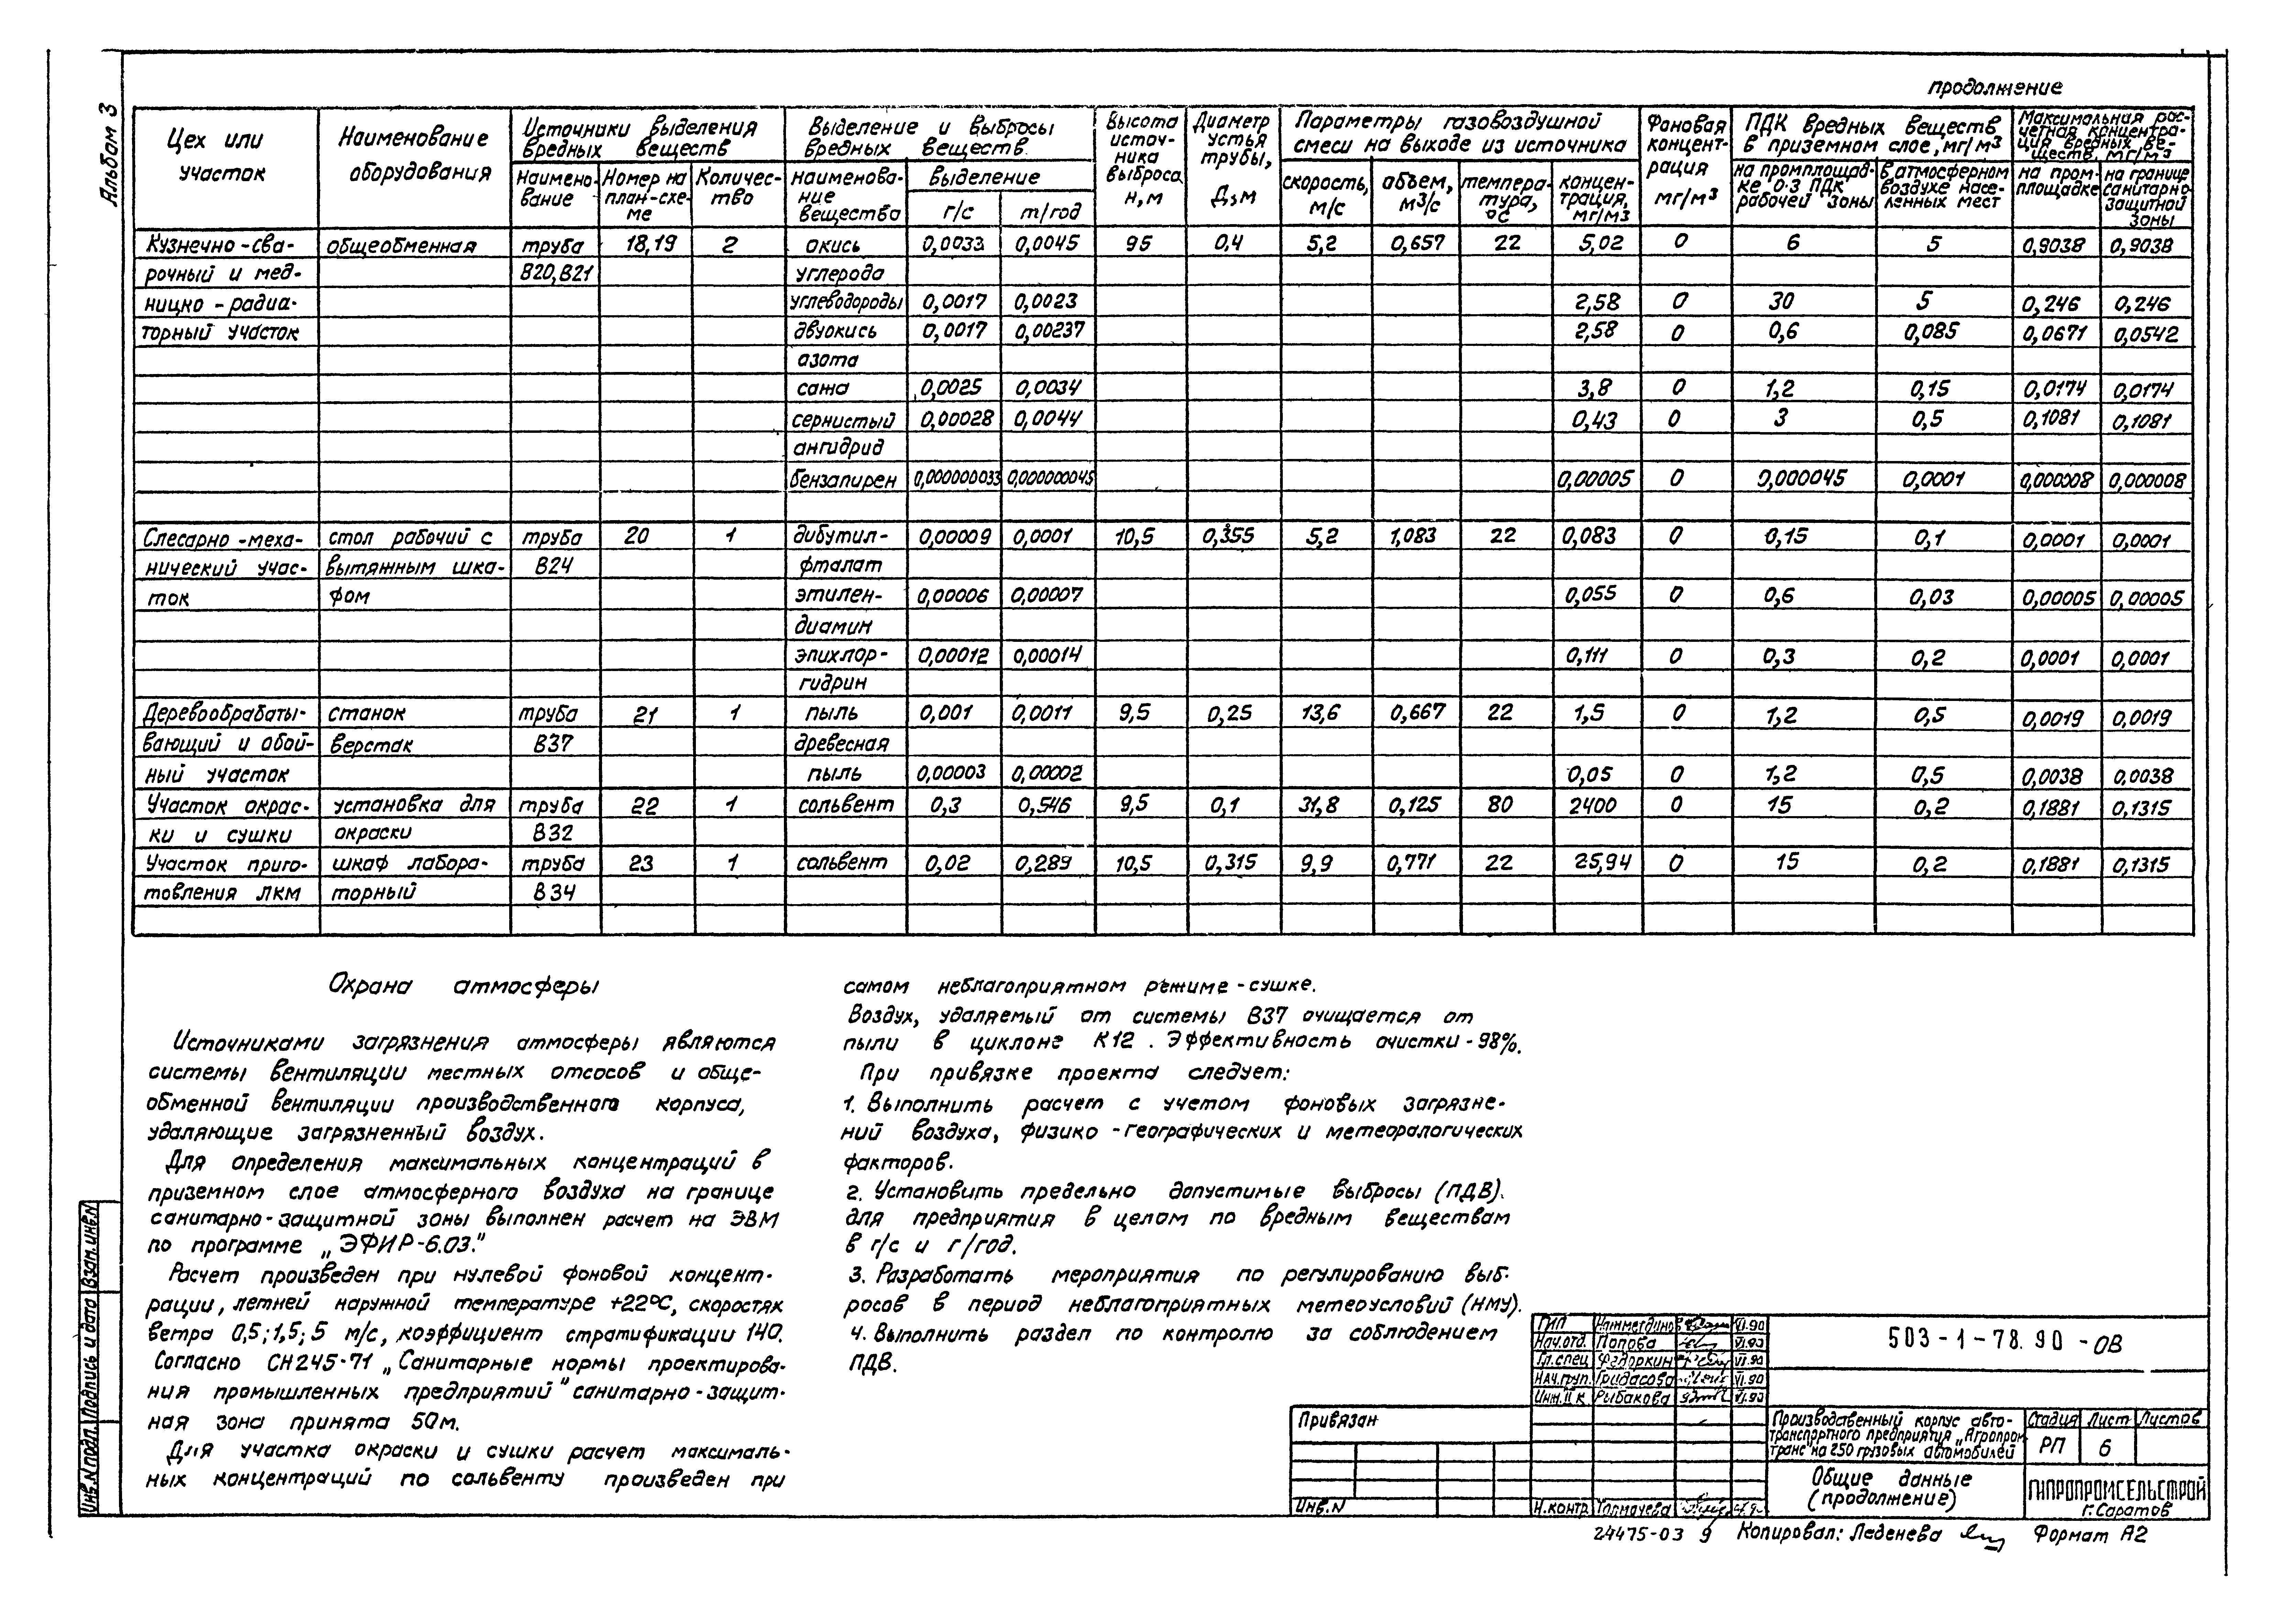 продолжение
Альбом 3
Цех или участок
Наименование оборудования
Источники выделения вредных веществ
Наименование
Номер на план-схеме
Количество
Выделение и выбросы вредных веществ.
наименование вещества
выделение
г/с
т/год
Высота источника выброса н, м
Диаметр устья трубы, Д, м
Параметры газовоздушной смеси на выходе из источника
скорость, м/с
объем, м3/с
температура, °С
концентрация, мг/м3
Фоновая концентрация мг/м3
ПДК вредных веществ в приземном слое, мг/м3
на промплощадке 0.3 ПДК рабочей зоны
в атмосферном воздухе населенных мест
Максимальная расчетная концентрация вредных веществ, мг/м3
на промплощадке
на границе санитарно-защитной зоны
Кузнечно-сва- общеобменная труба 18,19 2 окись 0,0033 0,0045 95 0,4 5,2 0,657 22 5,02 0 6 5 0,9038 0,9038
рочный и мед- В20,В21 углерода
ницко-радиа- углеводороды 0,0017 0,0023 2,58 0 30 5 0,246 0,246
торный участок двуокись 0,0017 0,00237 2,58 0 0,6 0,085 0,0671 0,0542
азота
сажа 0,0025 0,0034 3,8 0 1,2 0,15 0,0174 0,0174
сернистый 0,00028 0,0044 0,43 0 3 0,5 0,1081 0,1081
ангидрид
бензапирен 0,000000033 0,000000045 0,00005 0 0,000045 0,0001 0,000008 0,000008
Слесарно-меха- стол рабочий с труба 20 1 дибутил- 0,00009 0,0001 10,5 0,355 5,2 1,083 22 0,083 0 0,15 0,1 0,0001 0,0001
нический учас- вытяжным шка- В24 фталат
ток фом этилен- 0,00006 0,00007 0,055 0 0,6 0,03 0,00005 0,00005
диамин
эпихлор- 0,00012 0,00014 0,111 0 0,3 0,2 0,0001 0,0001
гидрин
Деревообрабаты- станок труба 21 1 пыль 0,001 0,0011 9,5 0,25 13,6 0,667 22 1,5 0 1,2 0,5 0,0019 0,0019
вающий и обой- верстак В37 древесная
ный участок пыль 0,00003 0,00002 0,05 0 1,2 0,5 0,0038 0,0038
Участок окрас- установка для труба 22 1 сольвент 0,3 0,546 9,5 0,1 31,8 0,125 80 2400 0 15 0,2 0,1881 0,1315
ки и сушки окраски В32
Участок приго- шкаф лабора- труба 23 1 сольвент 0,02 0,289 10,5 0,315 9,9 0,771 22 25,94 0 15 0,2 0,1881 0,1315
товления ЛКМ торный В34
Охрана атмосферы
Источниками загрязнения атмосферы являются
системы вентиляции местных отсосов и обще-
обменной вентиляции производственного корпуса,
удаляющие загрязненный воздух.
Для определения максимальных концентраций в
приземном слое атмосферного воздуха на границе
санитарно-защитной зоны выполнен расчет на ЭВМ
по программе „ЭФИР-6.03."
Расчет произведен при нулевой фоновой концент-
рации, летней наружной температуре +22°С, скоростях
ветра 0,5; 1,5; 5 м/с, коэффициент стратификации 140.
Согласно СН245-71 „Санитарные нормы проектирова-
ния промышленных предприятий" санитарно-защит-
ная зона принята 50м.
Для участка окраски и сушки расчет максималь-
ных концентраций по сольвенту произведен при
самом неблагоприятном режиме - сушке.
Воздух, удаляемый от системы В37 очищается от
пыли в циклоне К12. Эффективность очистки - 98%.
При привязке проекта следует:
1. Выполнить расчет с учетом фоновых загрязне-
ний воздуха, физико-географических и метеоралогических
факторов.
2. Установить предельно допустимые выбросы (ПДВ).
для предприятия в целом по вредным веществам
в г/с и г/год.
3. Разработать мероприятия по регулированию выб-
росов в период неблагоприятных метеоусловий (НМУ).
4. Выполнить раздел по контролю за соблюдением
ПДВ.
Взам.инв.N
Подпись и дата
Инв.N подл.
Привязан
Инв.N
ГИП VI.90
Нач.отд. Попова VI.90
Гл.спец Федоркин VI.90
Нач.груп. Гридасова VI.90
Инж.II к Рыбакова VI.90
Н.контр. Толмачева
503-1-78.90-ОВ
Производственный корпус авто-
транспортного предприятия „Агропром-
транс" на 250 грузовых автомобилей
Стадия Лист Листов
РП 6
Общие данные
(продолжение)
ГИПРОПРОМСЕЛЬСТРОЙ
г.Саратов
24475-03 9 Копировал: Леденева Формат А2